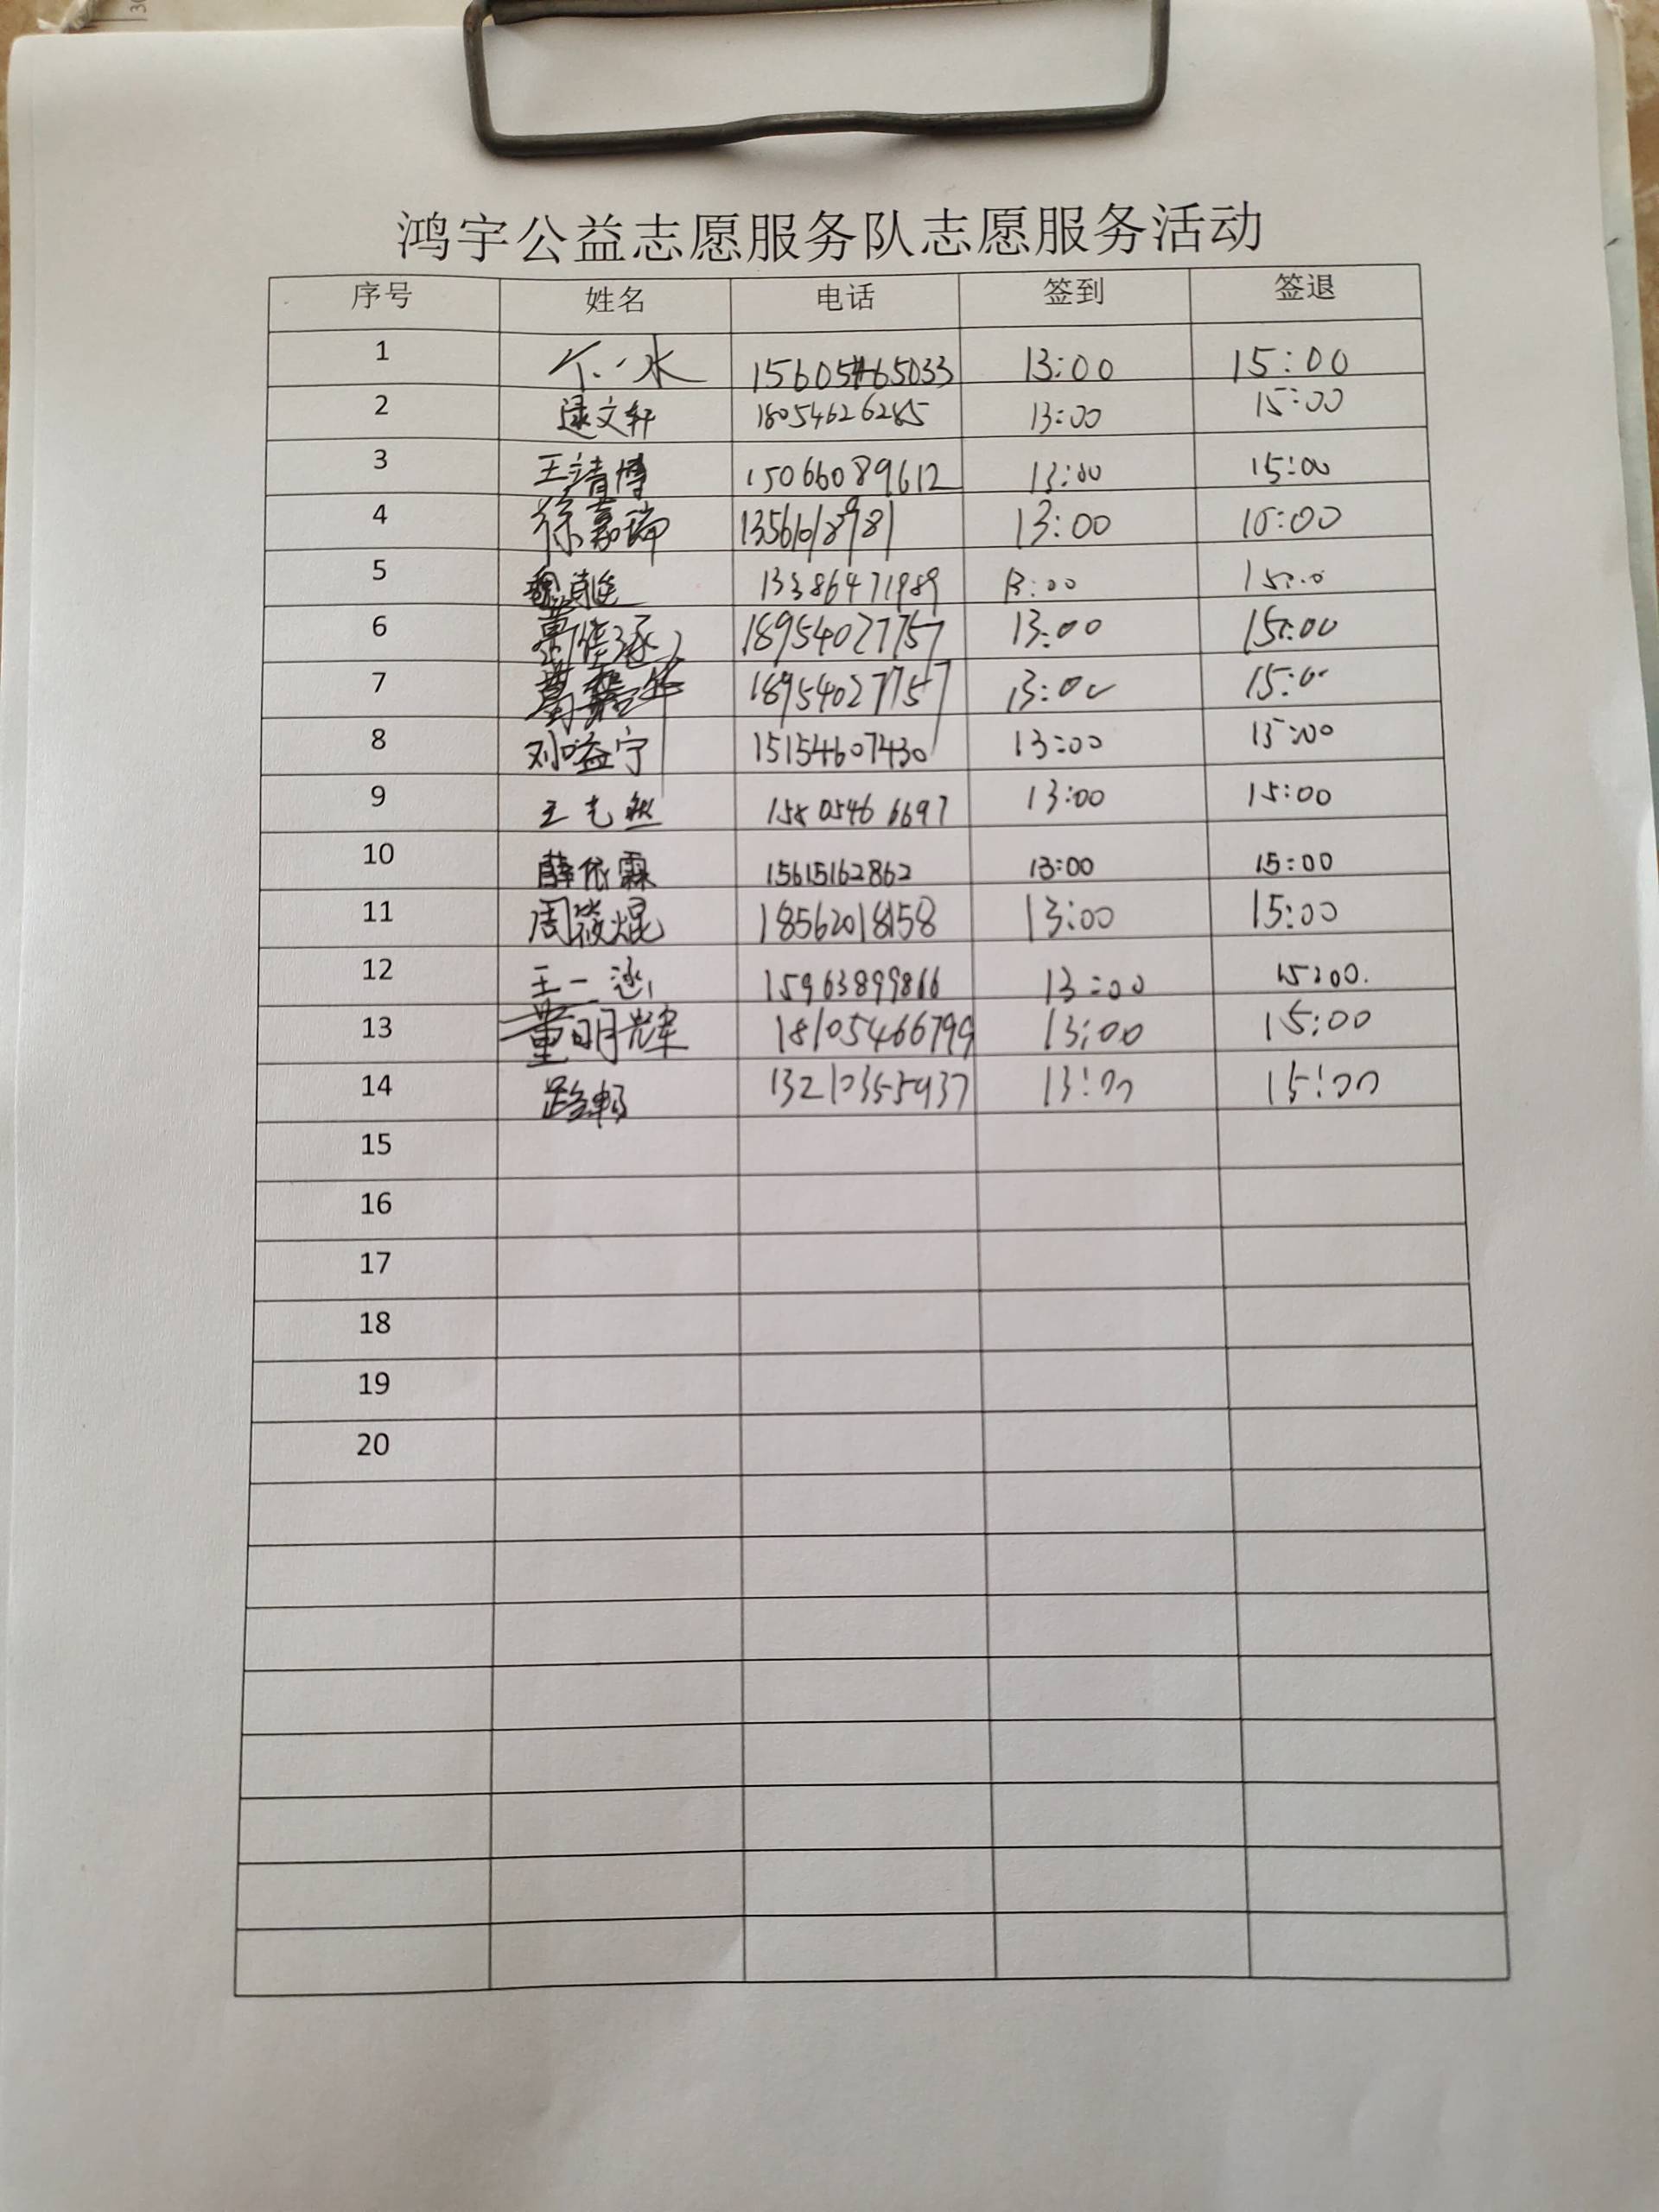 鸿宇公益志愿服务队志愿服务活动
序号 姓名 电话 签到 签退
1 15605465033 13:00 15:00
2 逯文轩 18054626285 13:00 15:00
3 王靖博 15066089612 13:00 15:00
4 徐嘉瑞 13561018981 13:00 15:00
5 13386471989 13:00 15:00
6 18954027757 13:00 15:00
7 18954027757 13:00 15:00
8 刘嗌宁 15154607430 13:00 15:00
9 王艺然 15805466697 13:00 15:00
10 薛依霖 15615162862 13:00 15:00
11 周筱焜 18562018158 13:00 15:00
12 王一 15963899866 13:00 15:00.
13 董明辉 18105466799 13:00 15:00
14 路畅 13210355937 13:00 15:00
15
16
17
18
19
20